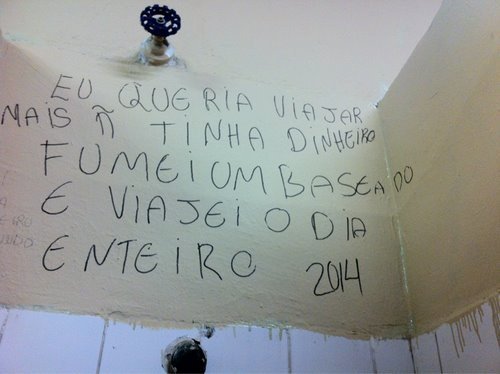 EU QUERIA VIAJAR
MAIS Ñ TINHA DINHEIRO
FUMEI UM BASEADO
E VIAJEI O DIA
ENTEIRO 2014